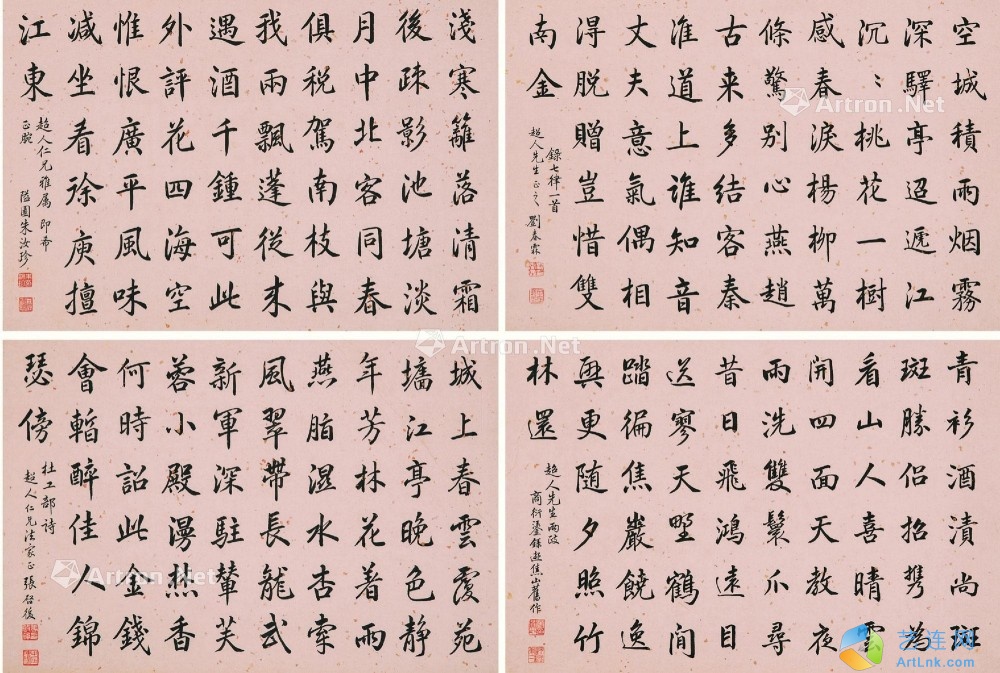 空城積雨烟霧
深驛亭迢遞江
沉〻桃花一樹
感春淚楊柳萬
條驚別心燕趙
古来多結客秦
淮道上誰知音
丈夫意氣偶相
得脱贈豈惜雙
南金
錄七律一首
超人先生正之 劉春霖
淺寒籬落清霜
後疎影池塘淡
月中北客同春
俱税駕南枝與
我雨飄蓬從来
遇酒千鍾可此
外評花四海空
惟恨廣平風味
减坐看徐庾擅
江東
超人仁兄雅属 即希
正腕
隘園朱汝珍
青衫酒漬尚斑
斑勝侣招携為
看山人喜晴雲
開四面天教夜
雨洗雙鬟爪尋
昔日飛鴻遠目
送寥天埜鶴閒
踏徧焦巖饒逸
興更随夕照竹
林還
超人先生兩政
商衍鎏錄遊焦山舊作
城上春雲覆苑
墻江亭晚色靜
年芳林花著雨
燕脂濕水杏牽
風翠帶長龍武
新軍深駐輦芙
蓉小殿漫焚香
何時詔此金錢
會暫醉佳人錦
瑟傍
杜工部詩
超人仁兄法家正 張啓後
Artron.Net
Artron.Net
Artron.Net
Artron.Net
艺连网
ArtLnk.com